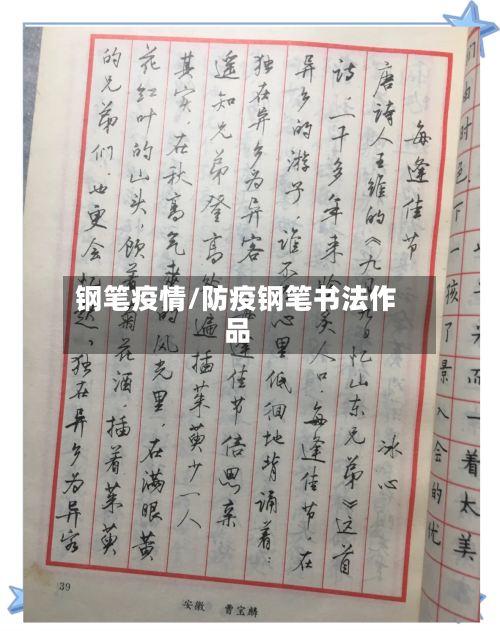 每逢佳节 冰心
唐诗人王维的《九月九日忆山东兄弟》这首
诗,一千多年来 炙人口。每逢佳节,在
异乡的游子,谁不 心里低徊地背诵着:
独在异乡为异客 逢佳节倍思亲
遥知兄弟登高 遍插茱萸少一人
其实,在秋高气爽的风光里,在满眼黄
花红叶的山头,饮着菊花酒,插着茱萸
的兄弟们,也更会 独在异乡为异客
钢笔疫情/防疫钢笔书法作
品
39
安徽 曹宝麟
着太美